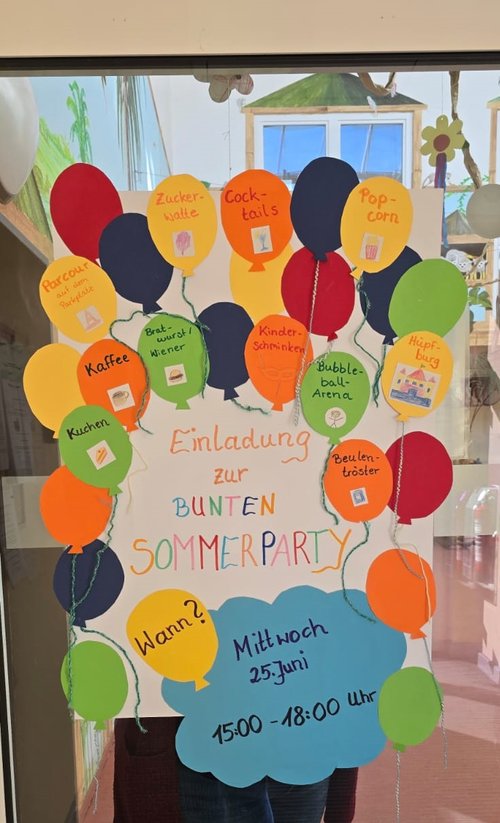 Zucker-
watte
Cock-
tails
Pop-
corn
Parcour
auf dem
Parkplatz
Kaffee
Brat-
wurst/
Wiener
Kinder-
schminken
Bubble-
ball-
Arena
Hüpf-
burg
Kuchen
Beulen-
tröster
Einladung
zur
BUNTEN
SOMMERPARTY
Wann?
Mittwoch
25. Juni
15:00 - 18:00 Uhr